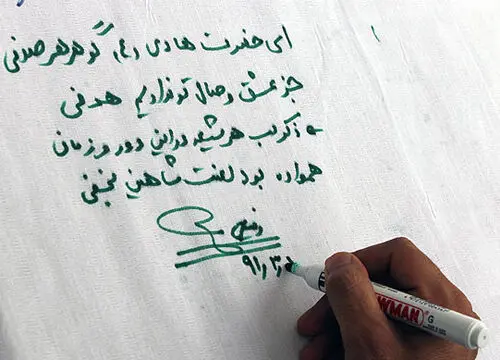 ای حضرت هادی (ع) گوهر هر صدفی
جز عشق وصال تو نداریم هدفی
ذکر لب هر شیعه در این دور و زمان
همواره بود لعنت شاهین نجفی
۹۱ر۳ر
WMAN G